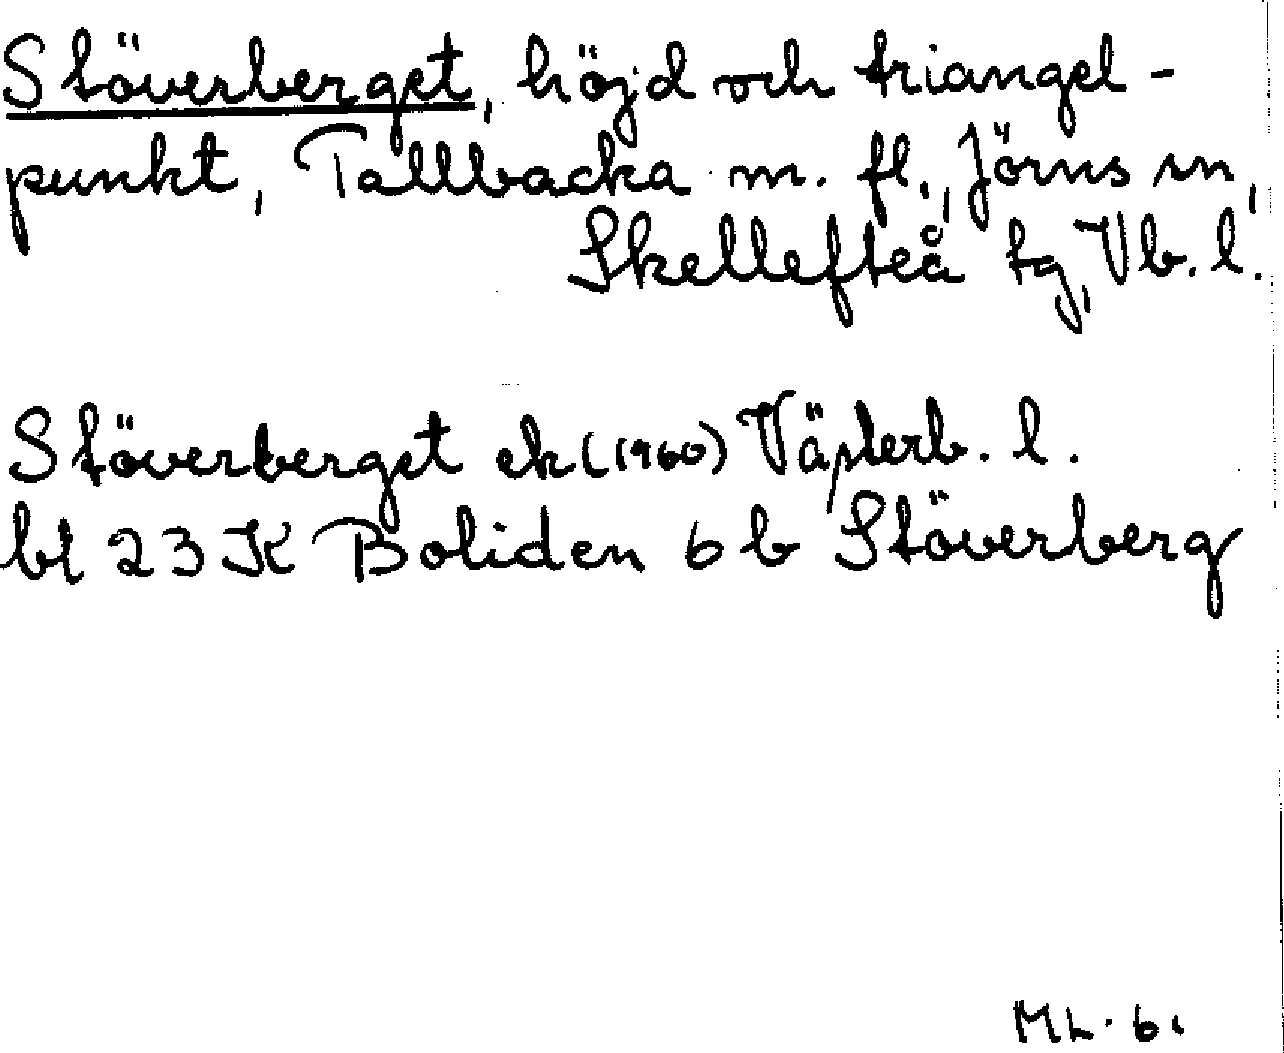 Stöverberget, höjd och triangel-
punkt, Tallbacka m. fl., Jörns sn,
Skellefteå tg, Vb. l.
Stöverberget ek (1960) Västerb. l.
bl 23 K Boliden 6 b Stöverberg
ML. 61